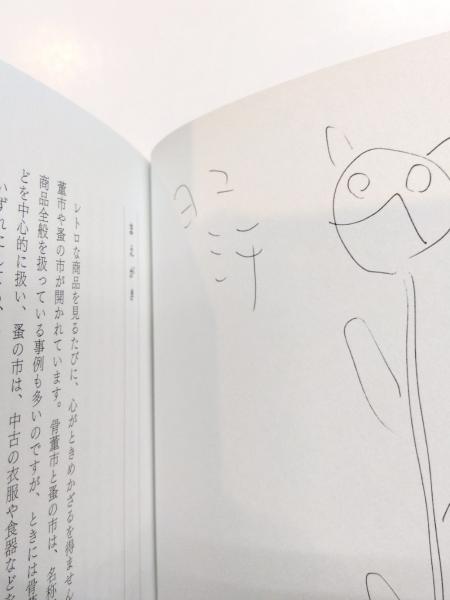 ヨコ
ミチ
レトロな商品を見るたびに、心がときめかざるを得ません
董市や蚤の市が開かれています。骨董市と蚤の市は、名称
商品全般を扱っている事例も多いのですが、ときには骨
どを中心的に扱い、蚤の市は、中古の衣服や食器などを
いずれにしても、